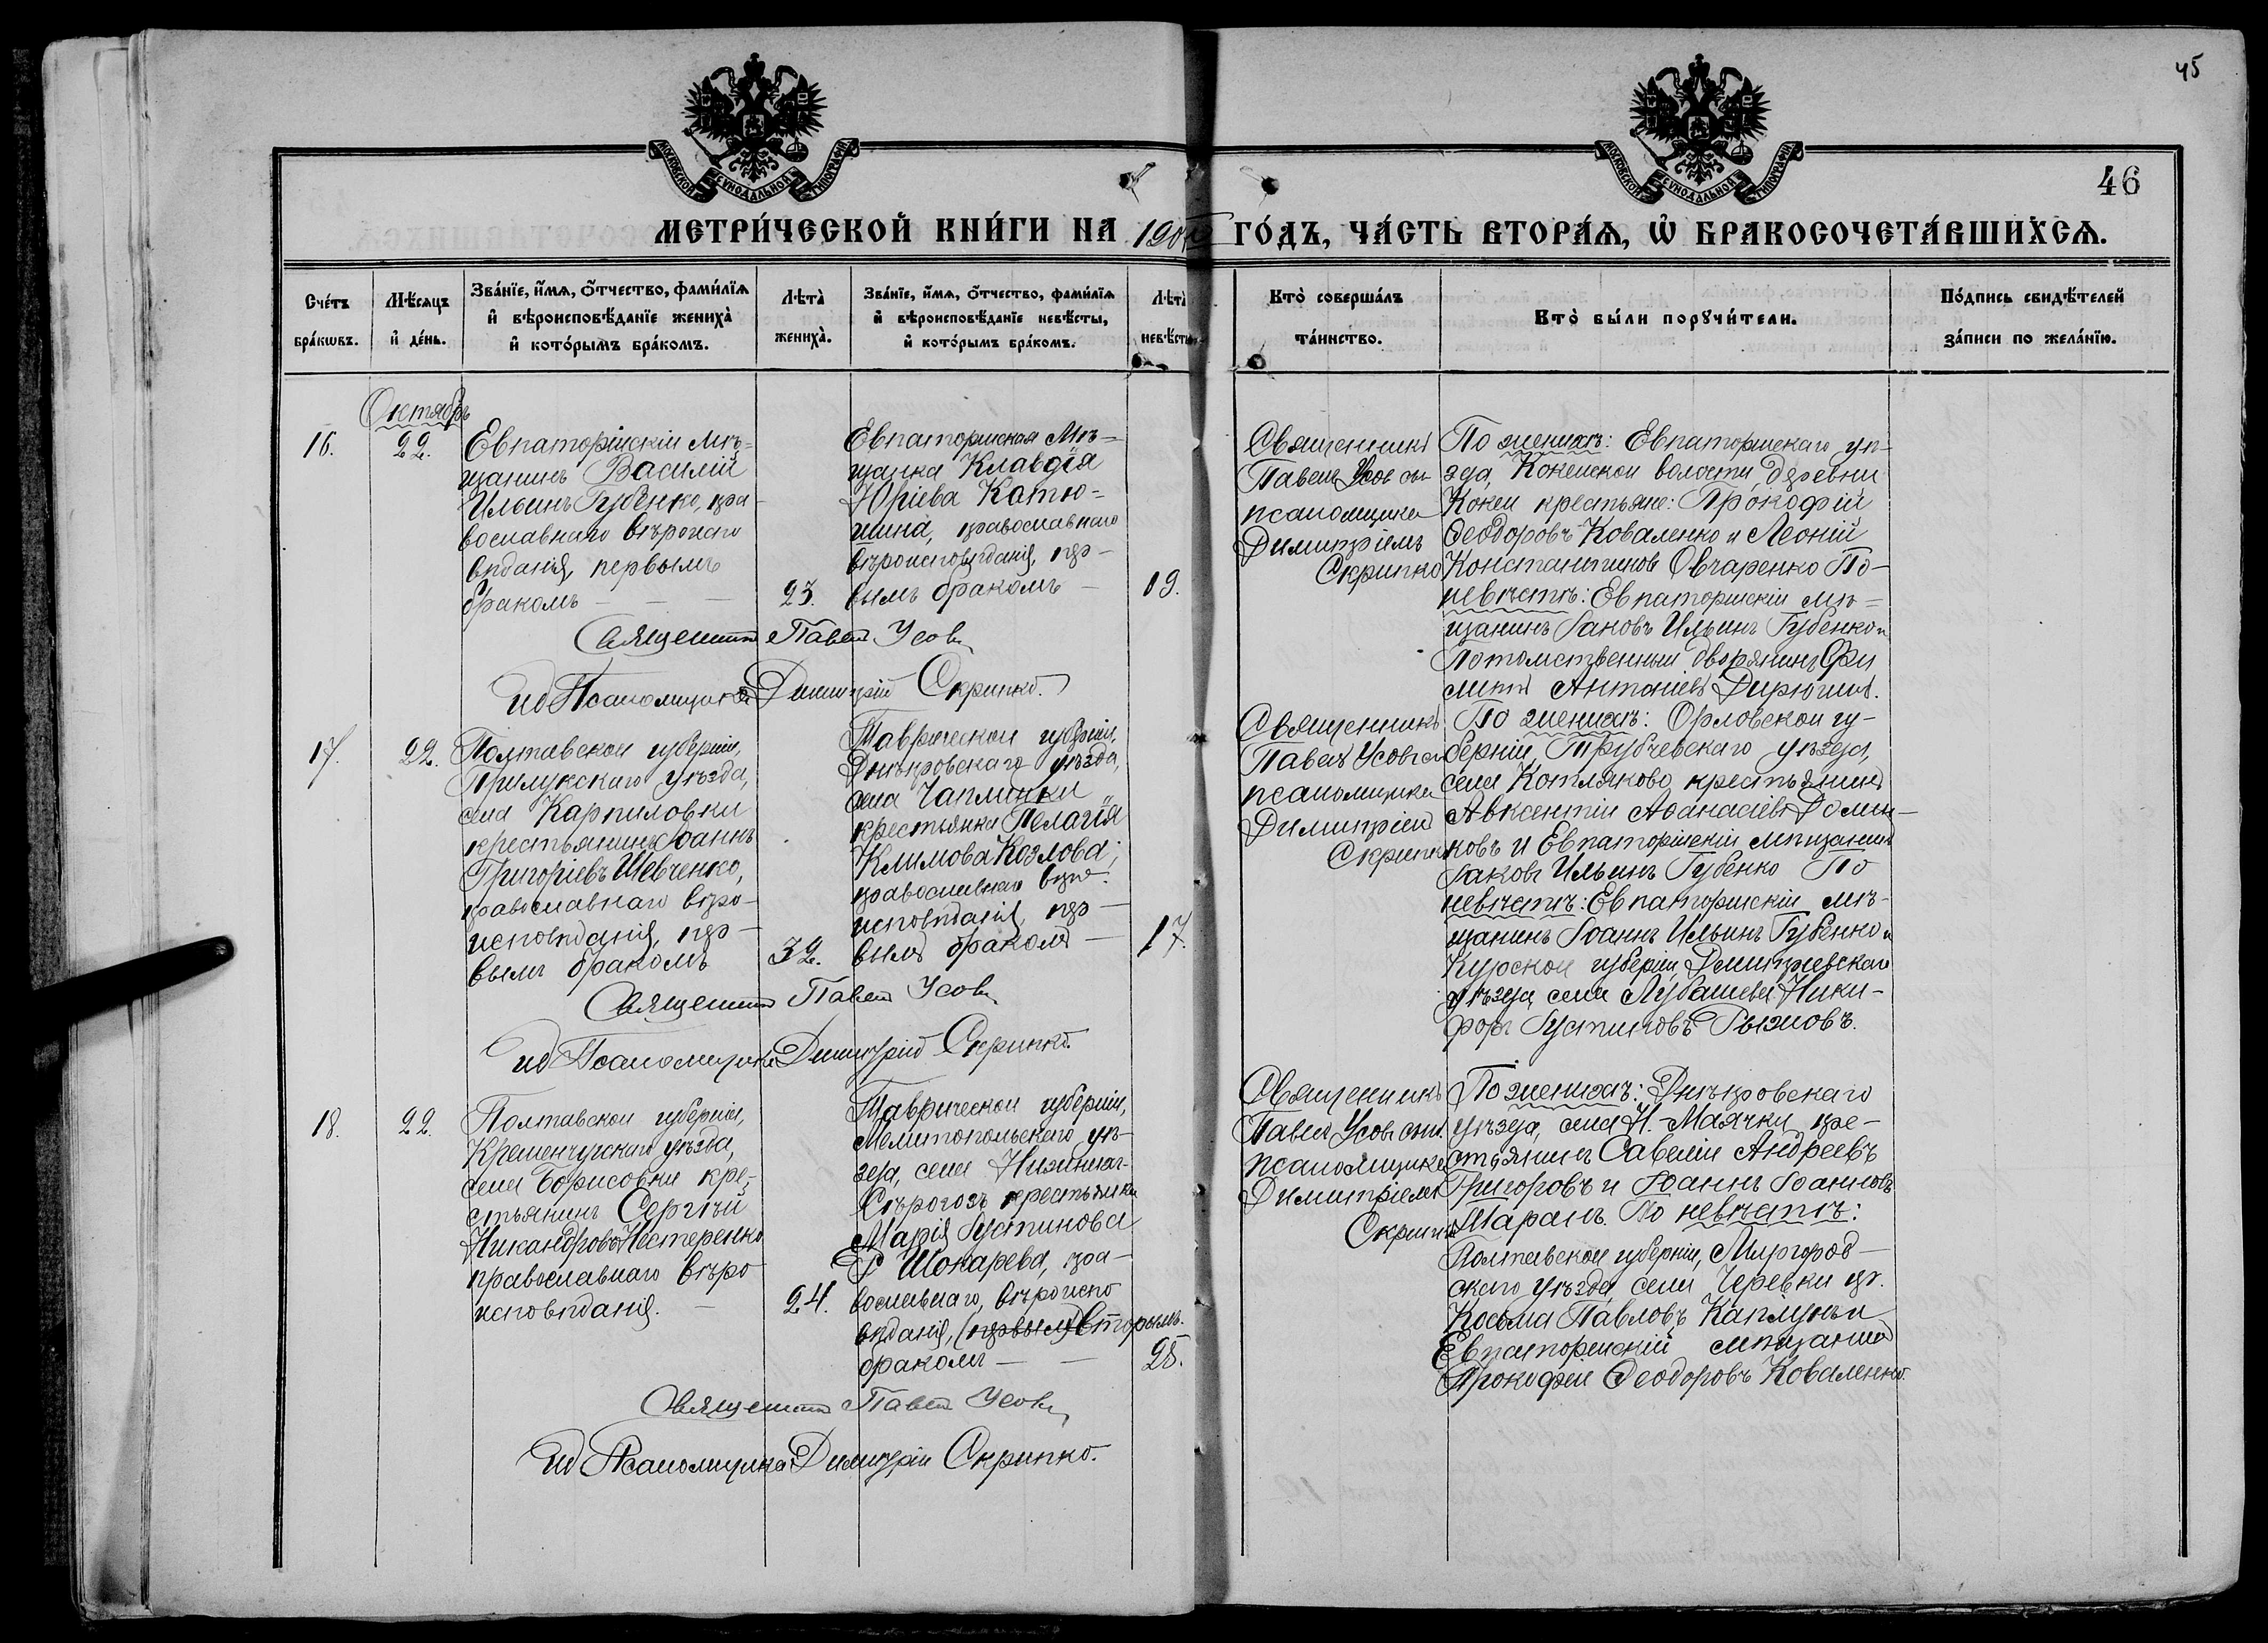 45
46
МОСКОВСКОЙ СѴНОДАЛЬНОЙ ТИПОГРАФІИ
МОСКОВСКОЙ СѴНОДАЛЬНОЙ ТИПОГРАФІИ
МЕТРИ́ЧЕСКОЙ КНИ́ГИ НА
ГО́ДЪ, ЧА́СТЬ ВТОРА́Ѧ, Ѡ҆ БРАКОСОЧЕТА́ВШИХСѦ.
Сче́тъ бра́кѡвъ.
Мѣ́сяцъ и҆ де́нь.
Зва́нїе, и҆́мѧ, ѻ҆́тчество, фами́лїѧ
и҆ вѣроисповѣ́данїе жениха̀
и҆ кото́рымъ бра́комъ.
Лѣта̀ жениха̀.
Зва́нїе, и҆́мѧ, ѻ҆́тчество, фами́лїѧ
и҆ вѣроисповѣ́данїе невѣ́сты,
и҆ кото́рымъ бра́комъ.
Лѣта̀
Кто̀ соверша́лъ
та́инство.
Кто̀ бы́ли порꙋчи́тели.
По́дпись свидѣ́телей
за́писи по жела́нїю.
Октябрь
16.
22.
Евпаторійскій мѣ-
щанинъ Василій
Ильинъ Губенко, пра-
вославнаго вѣроиспо
вѣданія, первымъ
бракомъ — — —
23.
Евпаторійская мѣ-
щанка Клавдія
Юріева Катю-
шина, православнаго
вѣроисповѣданія, пер-
вымъ бракомъ —
19.
Священникъ
Павелъ Усовъ съ
псаломщикомъ
Димитріемъ
Скрипко
По женихѣ: Евпаторійскаго уѣ-
зда, Кокейской волости, деревни
Кокеи крестьяне: Прокофій
Ѳеодоровъ Коваленко и Леонтій
Константиновъ Овчаренко По-
невѣстѣ: Евпаторійскій мѣ-
щанинъ Іаковъ Ильинъ Губенко и
Потомственный дворянинъ Фи
липпъ Антоніевъ Дирюгинъ.
Священникъ Павелъ Усовъ
ид Псаломщика Димитрій Скрипко.
17.
22.
Полтавской губерніи,
Прилукскаго уѣзда,
села Карпиловки
крестьянинъ Іоаннъ
Григоріевъ Шевченко,
православнаго вѣро-
исповѣданія, пер-
вымъ бракомъ
32.
Таврической губерніи,
Днѣпровскаго уѣзда,
села Чаплинки
крестьянка Пелагія
Климова Козлова,
православнаго вѣро-
исповѣданія, пер-
вымъ бракомъ —
17.
Священникъ
Павелъ Усовъ съ
псаломщикомъ
Димитріемъ
Скрипко
По женихѣ: Орловской гу-
берніи, Трубчевскаго уѣзда,
села Котляково крестьянинъ
Авксентій Аѳанасіевъ Домни-
ковъ и Евпаторійскій мѣщанинъ
Іаковъ Ильинъ Губенко По
невѣстѣ: Евпаторійскій мѣ-
щанинъ Іоаннъ Ильинъ Губенко и
Курской губерніи, Димитріевскаго
уѣзда, села Лубашева Ники-
форъ Іустиновъ Рыжовъ.
Священникъ Павелъ Усовъ
ид Псаломщика Димитрій Скрипко.
18.
22.
Полтавской губерніи,
Кременчугскаго уѣзда,
села Борисовки кре-
стьянинъ Сергѣй
Никандровъ Нестеренко
православнаго вѣро
исповѣданія. —
24.
Таврической губерніи,
Мелитопольскаго уѣ-
зда, села Нижнихъ-
Сѣрогозъ крестьянка
Марія Іустинова
Шокарева, пра-
вославнаго, вѣроиспо
вѣданія, (первымъ) вторымъ.
бракомъ — —
28.
Священникъ
Павелъ Усовъ съ
псаломщикомъ
Димитріемъ
Скрипко
По женихѣ: Днѣпровскаго
уѣзда, села Н.-Маячки, кре-
стьянинъ Савелій Андреевъ
Григоровъ и Іоаннъ Іоанновъ
Таранъ. По невѣстѣ:
Полтавской губерніи, Миргород-
скаго уѣзда, села Черевки кр.
Косьма Павловъ Каплунъ и
Евпаторійскій мѣщанинъ
Прокофій Ѳеодоровъ Коваленко.
Священникъ Павелъ Усовъ
ид Псаломщика Димитрій Скрипко.